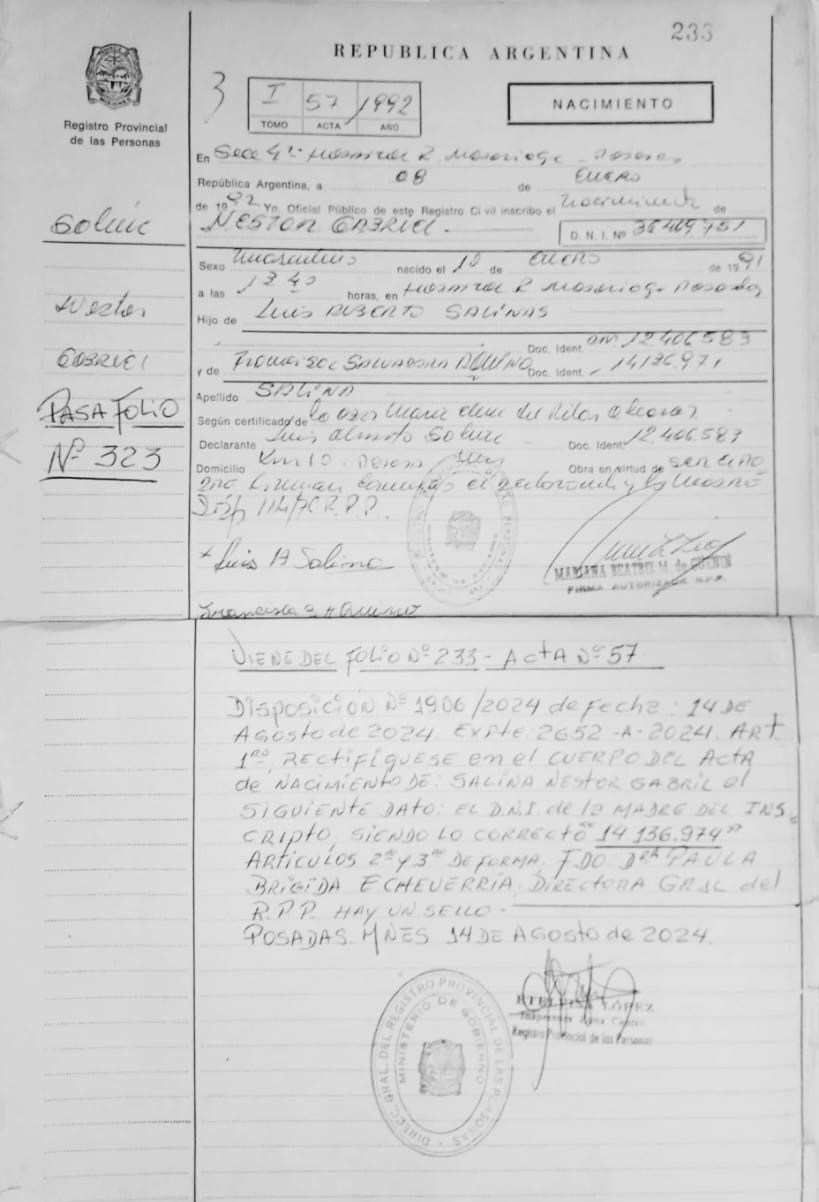 233
REPUBLICA ARGENTINA
Registro Provincial
de las Personas
3
I 57 1992
TOMO ACTA AÑO
NACIMIENTO
En Secc 4ª Hospital R. Madariaga - Posadas
República Argentina, a 08 de Enero
de 1992 Yo, Oficial Público de este Registro Civil inscribo el Nacimiento de
NESTOR GABRIEL.
D. N. I. Nº
Sexo Masculino nacido el de Enero de 1991
a las horas, en Hospital R Madariaga Posadas
Hijo de Luis ALBERTO SALINAS
Doc. Ident. 12.406.583
y de Francisca SALVADORA AQUINO Doc. Ident. 14136.971
Apellido SALINA
Según certificado de
Declarante Luis Alberto Salina Doc. Ident. 12.406.583
Domicilio Km 10 - Posadas Obra en virtud de
Disp 114/76 R.P.P.
Luis A Salina
MARIANA BEATRIZ M. de
FIRMA AUTORIZADA R.P.P.
Francisca S. Aquino
Salina
Nestor
Gabriel
PASA FOLIO
Nº 323
VIENE DEL FOLIO Nº 233 - ACTA Nº 57
DISPOSICIÓN Nº 1906/2024 de fecha: 14 DE
AGOSTO de 2024. EXPTE 2652-A-2024. ART
1ro RECTIFÍQUESE en el CUERPO DEL ACTA
de NACIMIENTO DE: SALINA NESTOR GABRIL el
SIGUIENTE DATO: EL D.N.I. de la MADRE DEL INS
CRIPTO, SIENDO LO CORRECTO "14.136.974"
ARTICULOS 2do y 3ro DE FORMA, FDO DRA PAULA
BRIGIDA ECHEVERRÍA, DIRECTORA GRAL del
R.P.P. HAY UN SELLO -
POSADAS MNES 14 DE AGOSTO de 2024.
LÓPEZ
Registro Provincial de las Personas
DIREC. GRAL. DEL REGISTRO PROVINCIAL DE LAS PERSONAS
MINISTERIO DE GOBIERNO